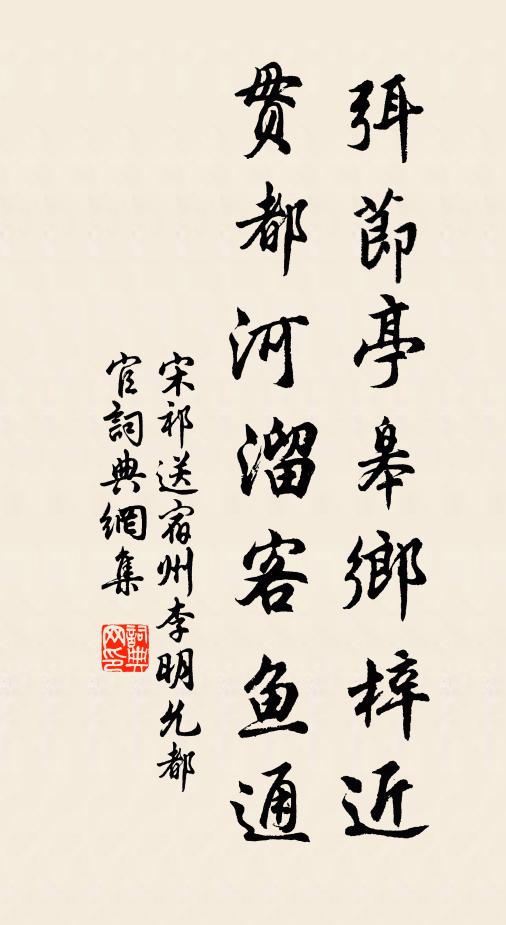 弭節亭皋鄉梓近
貫都河溜客鱼通
宋祁送宿州李明允都
官詞典網集
詞典
网印